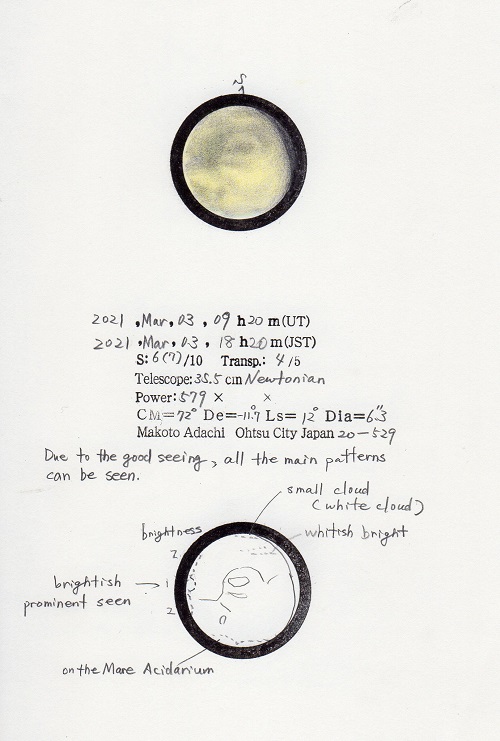 S
2021 , Mar, 03 , 09 h 20 m (UT)
2021 , Mar, 03 , 18 h 20 m (JST)
S: 6 (7) /10 Transp.: 4 /5
Telescope: 35.5 cm Newtonian
Power: 579 × ×
CM=72° De=-11.7° Ls= 12° Dia=6".3
Makoto Adachi Ohtsu City Japan 20-529
Due to the good seeing, all the main patterns
can be seen.
small cloud
(white cloud)
brightness
whitish bright
2
brightish
1
prominent seen
2
on the Mare Acidarium